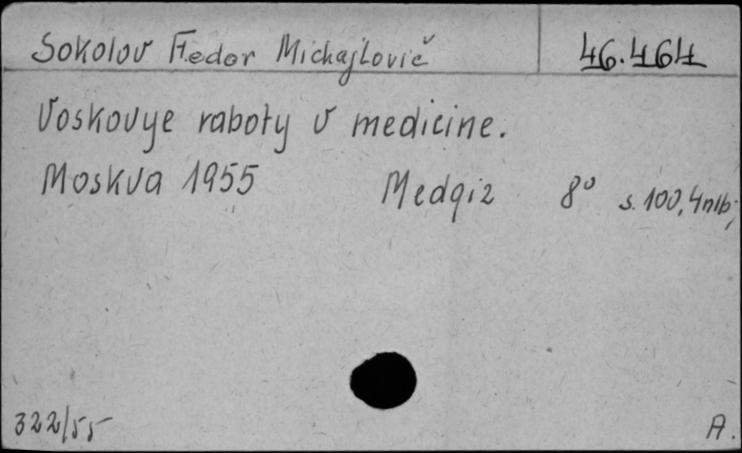 Sokolov Fedor Michajlovič 46.464
Voskovye raboty v medicine.
Moskva 1955 Medgiz 8° s. 100, 4 nlb;
322/55 A.